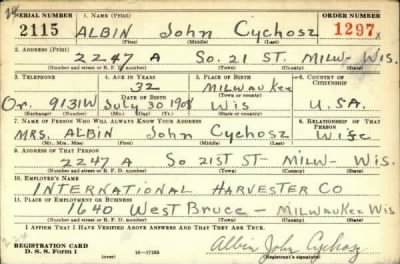 24
SERIAL NUMBER 1. NAME (Print) ORDER NUMBER
2115 ALBIN John Cychosz 1297x
(First) (Middle) (Last)
2. ADDRESS (Print)
2247 A So. 21 ST. MILW- WIS.
(Number and street or R. F. D. number) (Town) (County) (State)
3. TELEPHONE 4. AGE IN YEARS 5. PLACE OF BIRTH 6. COUNTRY OF CITIZENSHIP
32 MILWAUKEE
DATE OF BIRTH (Town or county)
Or. 9131W July 30 1908 Wis U.S.A.
(Exchange) (Number) (Mo.) (Day) (Yr.) (State or country)
7. NAME OF PERSON WHO WILL ALWAYS KNOW YOUR ADDRESS 8. RELATIONSHIP OF THAT PERSON
MRS. ALBIN John Cychosz Wife
(Mr., Mrs., Miss) (First) (Middle) (Last)
9. ADDRESS OF THAT PERSON
2247 A So 21ST ST- MILW- Wis.
(Number and street or R. F. D. number) (Town) (County) (State)
10. EMPLOYER'S NAME
INTERNATIONAL HARVESTER CO
11. PLACE OF EMPLOYMENT OR BUSINESS
1640 West Bruce - MILWAUKEE Wis
(Number and street or R. F. D. number) (Town) (County) (State)
I AFFIRM THAT I HAVE VERIFIED ABOVE ANSWERS AND THAT THEY ARE TRUE.
REGISTRATION CARD Albin John Cychosz
D. S. S. FORM 1 (over) 16-17105 (Registrant's signature)